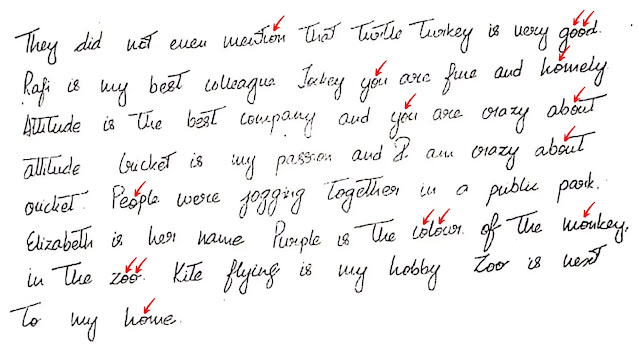 They did not even mention that turtle turkey is very good.
Rafi is my best colleague Jockey you are fine and homely
Attitude is the best company and you are crazy about
attitude Cricket is my passion and I am crazy about
cricket. People were jogging together in a public park.
Elizabeth is her name Purple is the colour of the monkey.
in the zoo. Kite flying is my hobby Zoo is next
To my home.